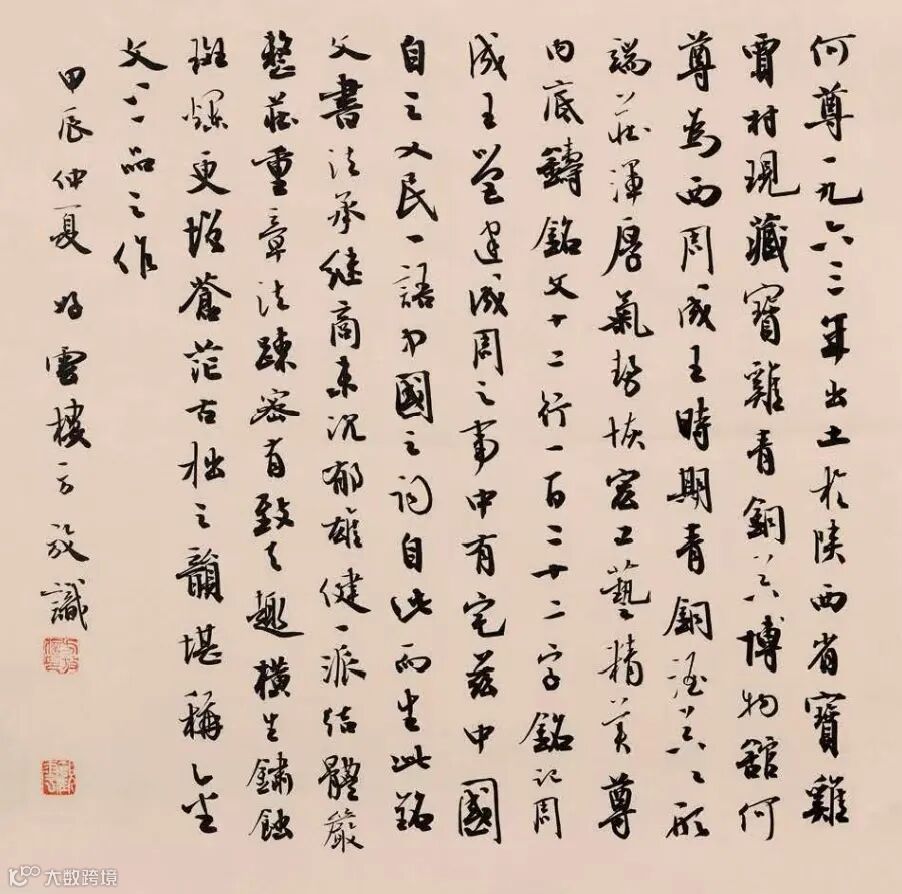 何尊一九六三年出土於陝西省寶雞
賈村現藏寶雞青銅器博物館何
尊為西周成王時期青銅酒器〻形
端莊渾厚氣勢恢宏工藝精美尊
內底鑄銘文十二行一百二十二字銘記周
成王營建成周之事中有宅茲中國
自之乂民一語中國之詞自此而生此銘
文書法承繼商末沉郁雄健一派結體嚴
整莊重章法疎密有致天趣橫生鏽蝕
斑斕更增蒼茫古拙之韻堪稱金
文上品之作
甲辰仲夏好雲樓方放識
大数跨境